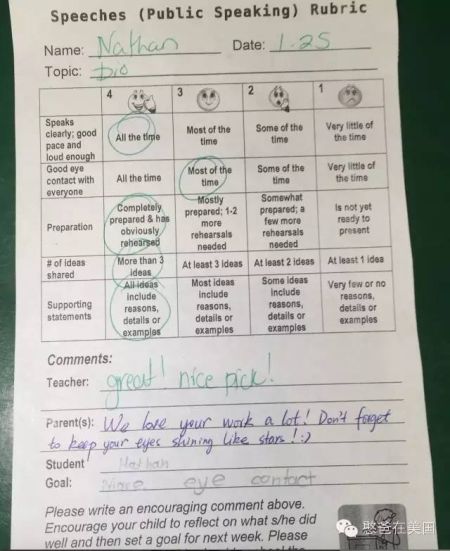 Speeches (Public Speaking) Rubric
Name: Nathan Date: 1.25
Topic: Dio
4 3 2 1
Speaks clearly; good pace and loud enough
All the time
Most of the time
Some of the time
Very little of the time
Good eye contact with everyone
All the time
Most of the time
Some of the time
Very little of the time
Preparation
Completely prepared & has obviously rehearsed
Mostly prepared; 1-2 more rehearsals needed
Somewhat prepared; a few more rehearsals needed
Is not yet ready to present
# of ideas shared
More than 3 ideas
At least 3 ideas
At least 2 ideas
At least 1 idea
Supporting statements
All ideas include reasons, details or examples
Most ideas include reasons, details or examples
Some ideas include reasons, details or examples
Very few or no reasons, details or examples
Comments:
Teacher: great! nice pick!
Parent(s): We love your work a lot! Don't forget
to keep your eyes shining like stars! :)
Student Nathan
Goal: More eye contact
Please write an encouraging comment above.
Encourage your child to reflect on what s/he did
well and then set a goal for next week. Please
憨爸在美国